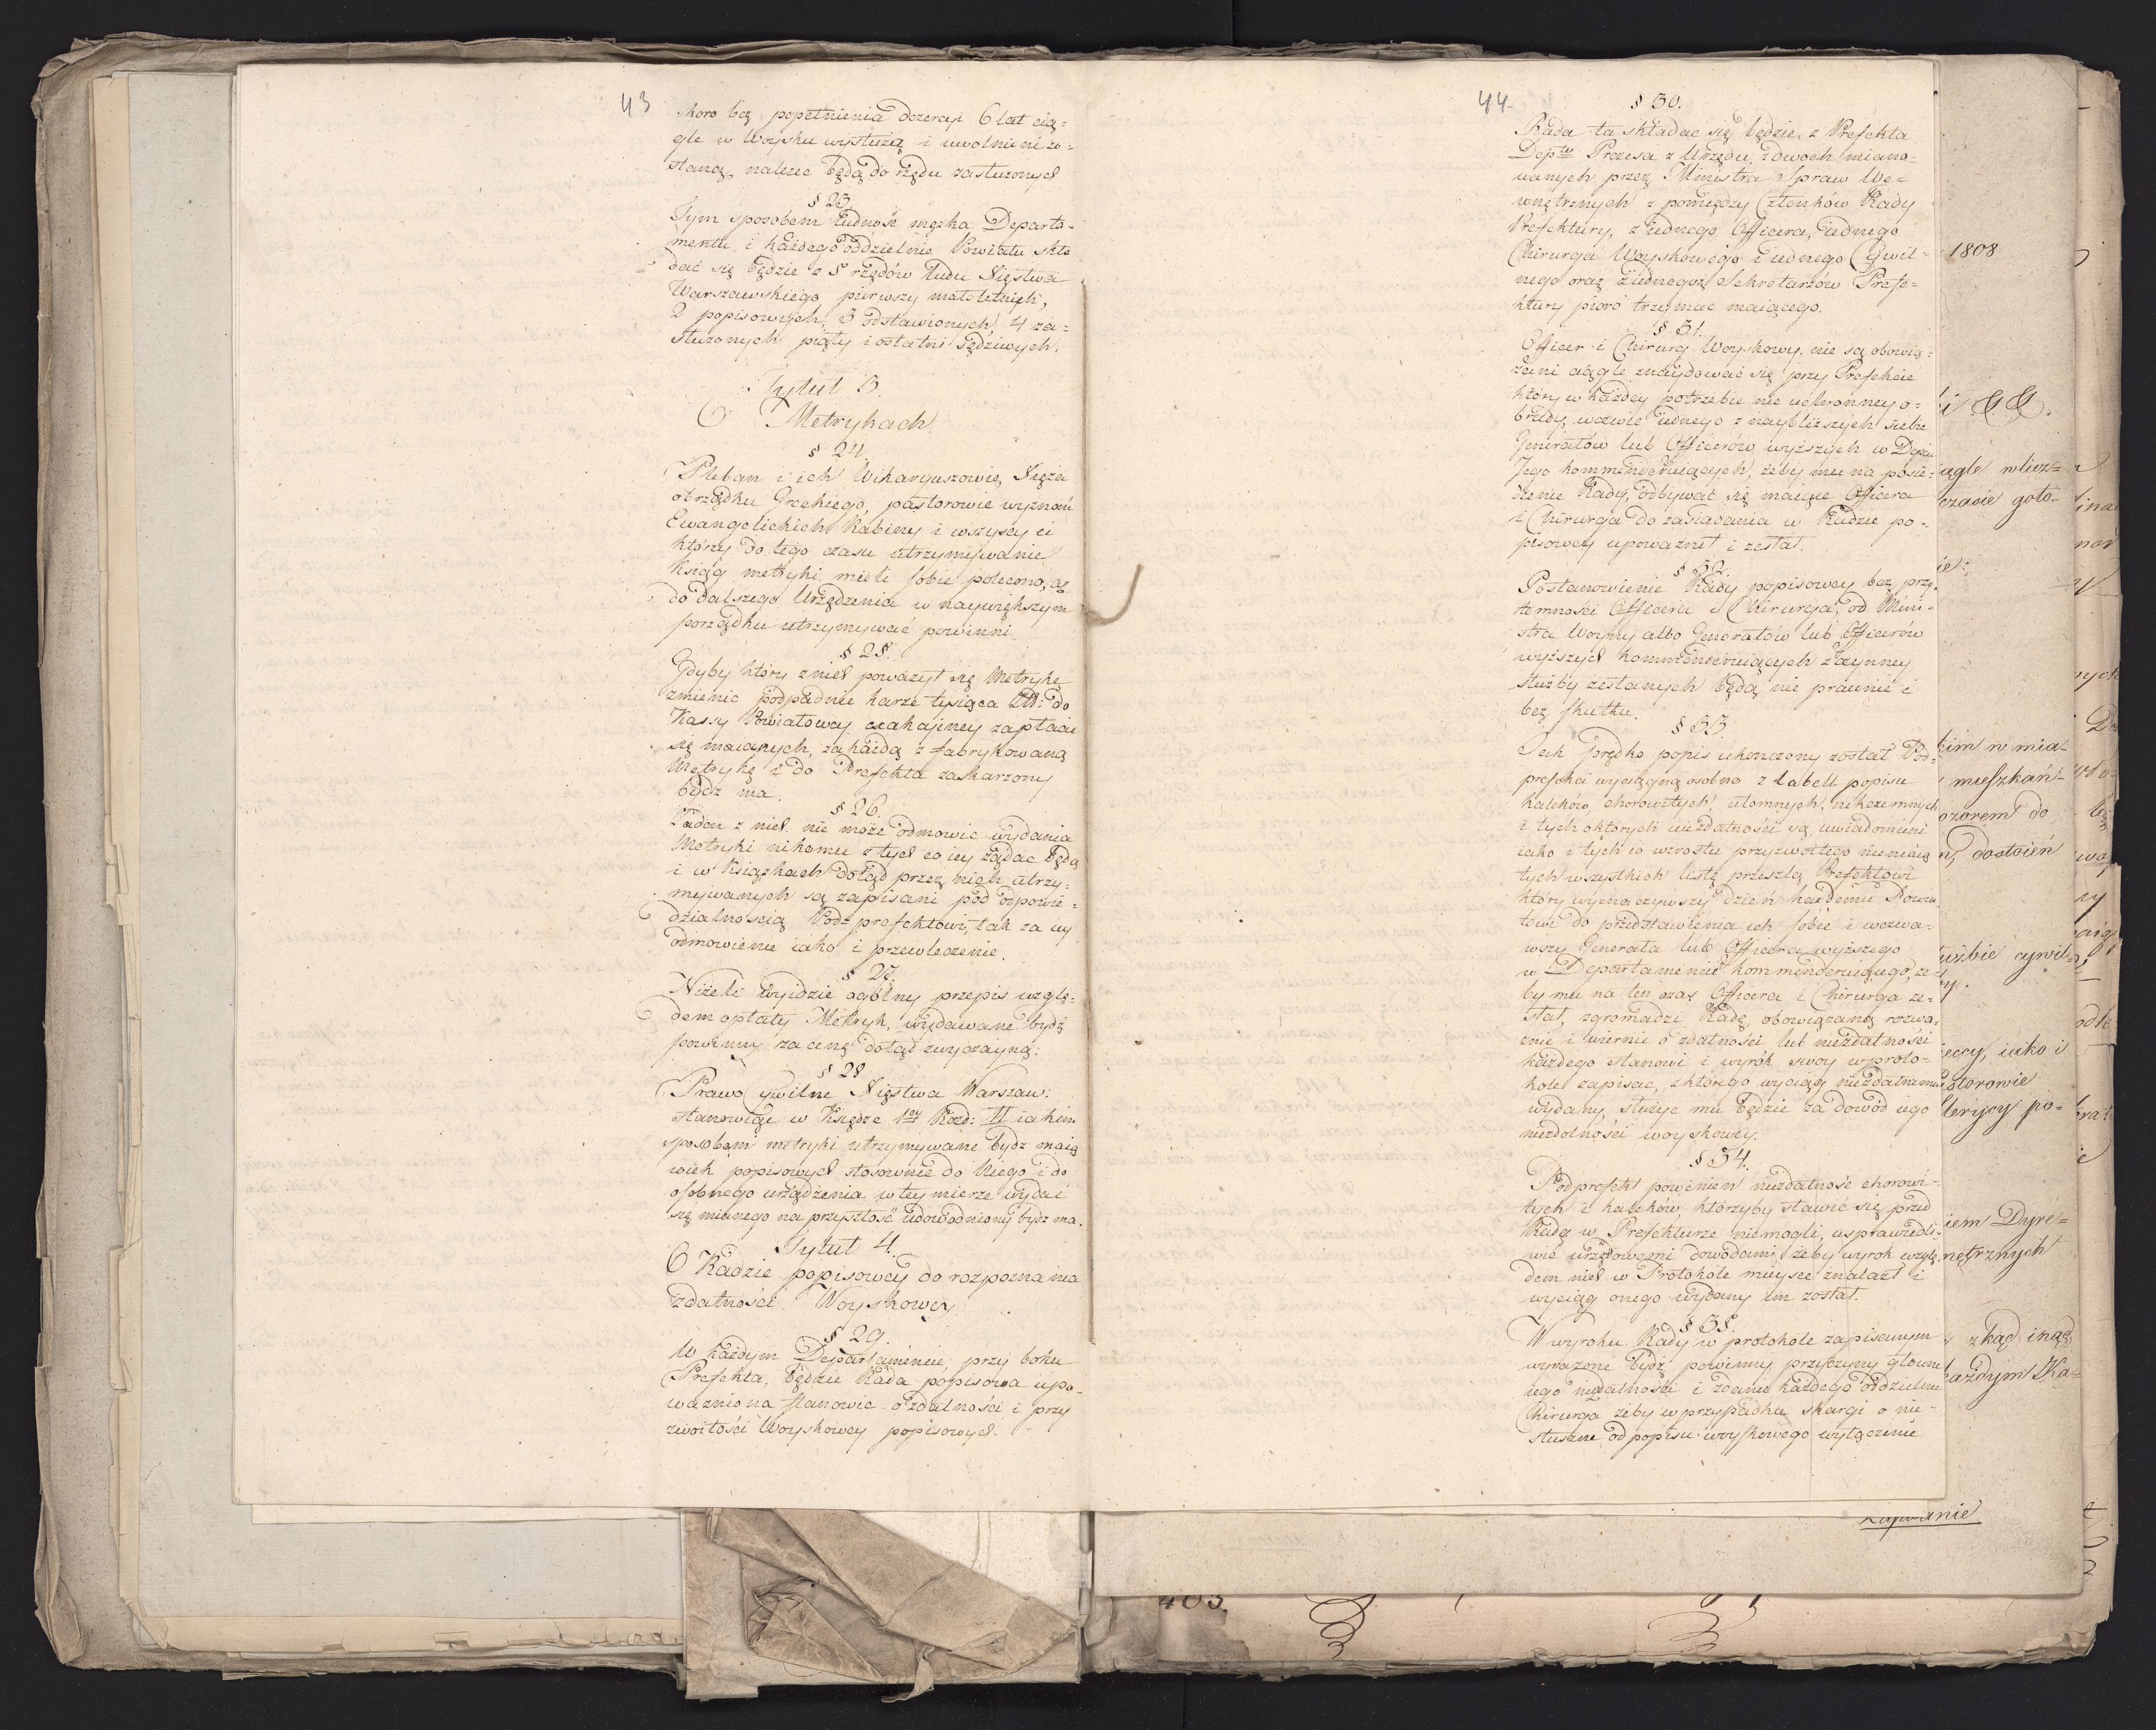 43
skoro bez popełnienia dezercyi 6 lat cią=
gle w Woysku wysłużą i uwolnieni zo=
staną, należeć będą do rzędu zasłużonych
§ 23
Tym sposobem ludność męzka Departa=
mentu i każdego oddzielnie Powiatu skła
dać się będzie z 5 rzędów ludu Xięstwa
Warszawskiego pierwszy małoletnich,
2 popisowych, 3 odstawionych, 4 za=
słuzonych piąty i ostatni sędziwych.
Tytuł 3.
O Metrykach
§ 24.
Pleban i ich Wikaryuszowie, Xięża
obrządku Greckiego, pastorowie wyznań
Ewangelickich Rabiny i wszyscy ci
którzy do tego czasu utrzymywanie
Ksiąg metryki mieli sobie polecono, aż
do dalszego Urządzenia w naywiększym
porządku utrzymywać powinni.
§ 25.
Gdyby który z nich poważył się Metrykę
zmienić podpadnie karze tysiąca Zł: do
Kassy Powiatowey czakainey zapłacic
się maiących, za każdą z fabrykowaną
Metrykę i do Prefekta zaskarzony
bydź ma.
§ 26.
Żaden z nich nie może odmowić wydania
Metryki nikomu z tych co iey żądać będą
i w Książkach dotąd przez nich utrzy=
mywanych są zapisani pod odpowie=
dzialnością Pod=prefektowi, tak za iey
odmowienie iako i przewleczenie.
§ 27.
Niżeli wyidzie ogólny przepis wzglę=
dem opłaty Metryk, wydawane bydź
powinny za cenę dotąd zwyczayną:
§ 28
Prawo Cywilne Xięstwa Warszaw:
stanowiąc w Księdze 1ey Rozd: II iakim
sposobem metryki utrzymywane bydz maią
wiek popisowych stosownie do Niego i do
osobnego urządzenia w tey mierze wydać
się mianego na przyszłość udowodniony bydz ma.
Tytuł 4.
O Radzie popisowey do rozpoznania
zdatności Woyskowey
§ 29.
W każdym Departamencie, przy boku
Prefekta, będzie Rada popisowa upo=
ważniona stanowić o zdatności i przy
zwoitości Woyskowey popisowych.
44
§ 30.
Rada ta składać się będzie, z Prefekta
Deptu Prezesa z Urzędu, z dwoch miano=
wanych przez Ministra Spraw We=
wnętrznych z pomiędzy Członków Rady
Prefektury, z iednego Officera, iednego
Chirurga Woyskowego i iednego Cywil=
nego oraz z iednego z Sekretarzów Prefe=
ktury pióro trzymać maiącego.
§ 31.
Officer i Chirurg Woyskowy nie są obowią=
zani ciągle znaydować się przy Prefekcie
który w każdey potrzebie nie uchronney o=
brady, wezwie iednego z naybliższych siebie
Generałów lub Officerów wyższych w Depcie
Jego kommenderuiących, żeby mu na posie=
dzenie Rady, odbywać się maiące Officera
i Chirurga do zasiadania w Radzie po=
pisowey upoważnił i zesłał.
§ 32.
Postanowienie Rady popisowey bez przy=
tomności Officera i Chirurga, od Mini=
stra Woyny albo Generałów lub Officerów
wyższych kommenderuiących z czynney
służby zesłanych będą nie prawnie i
bez skutku.
§ 33.
Jak prędko popis ukończony został Pod=
prefekci wyciągną osobno z tabell popisu
kaleków, chorowitych, ułomnych, nikczemnych
i tych o których niezdatności są uwiadomieni
iako i tych co wzrostu przyzwoitego nie maią
tych wszystkich listę prześlą Prefektowi
który wyznaczywszy dzień każdemu Powia
towi do przedstawienia ich sobie i wezwa=
wszy Generała lub Officera wyższego
w Departamencie kommenderuiącego, że=
by mu na ten czas Officera i Chirurga ze=
słał, zgromadzi Radę obowiązaną rozwa=
żnie i wiernie o zdatności lub niezdatności
każdego stanowi i wyrok swoy w proto=
kole zapisać, z którego wyciąg niezdatnemu
wydany, służyć mu będzie za dowód iego
niezdolności woyskowey.
§ 34.
Podprefekt powinien niezdatność chorowi=
tych i kaleków, którzyby stawić się przed
Radą w Prefekturze niemogli, usprawiedli=
wić urzędowemi dowodami, żeby wyrok wzglę=
dem nich w Protokole mieysce znalazł i
wyciąg onego wydany im został.
§ 35.
W wyroku Rady w protokole zapisanym
wyrażone bydź powinny przyczyny główne
iego niezdatności i zdanie każdego oddzielnie
Chirurga żeby w przypadku skargi o nie=
słuszne od popisu woyskowego wyłączenie
1808
czasie goto-
kim w mia-
mieszkań-
ozorem do
dostoień
użbie cywil=
iako i
storowie
po=
iem Dyre=
nętrznych
zkąd inąd
każdym Ka=
403.